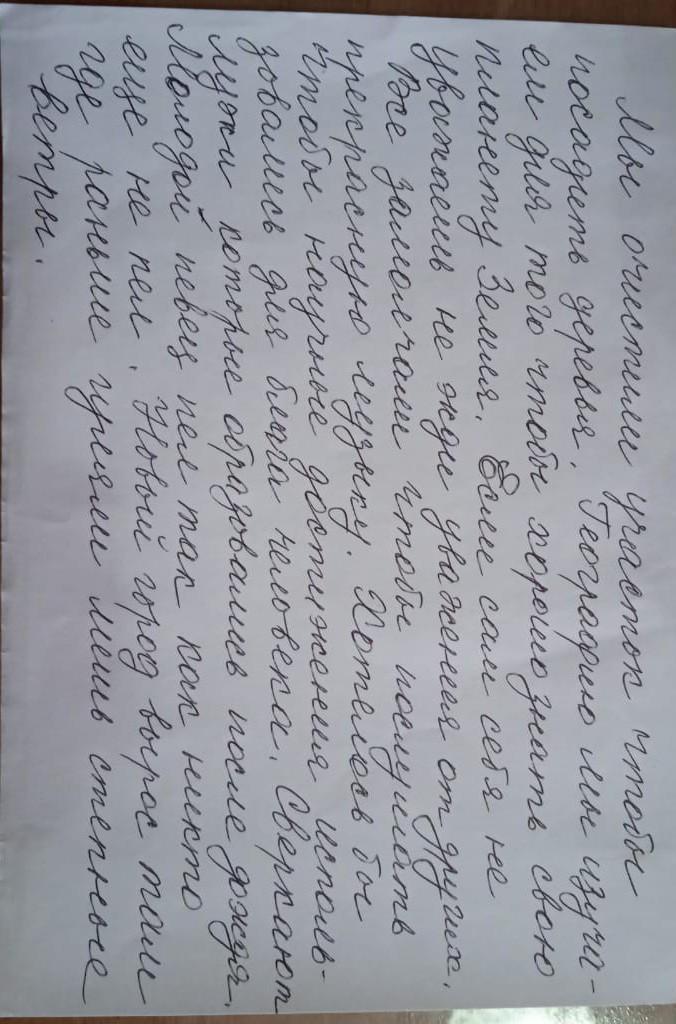 Мы очистили участок чтобы
посадить деревья. Географию мы изуча-
ем для того чтобы хорошо знать свою
планету Земля. Если сам себя не
уважаешь не жди уважения от других.
Все замолчали чтобы послушать
прекрасную музыку. Хотелось бы
чтобы научные достижения исполь-
зовались для блага человека. Сверкают
лужи которые образовались после дождя.
Молодой певец пел так как никто
еще не пел. Новый город вырос там
где раньше гуляли лишь степные
ветры.